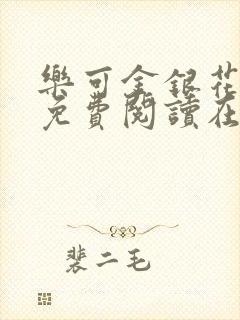 樂可金銀花
免費閱讀在
裴二毛